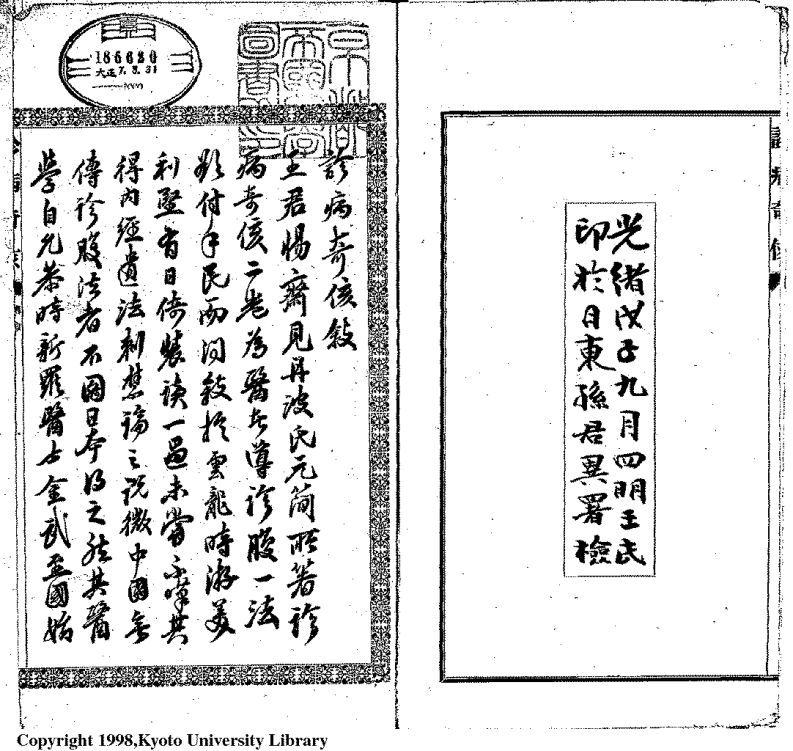 光緒戊子九月四明王氏
印於日東孫君異署檢
診病奇侅
診病奇侅敍
王君惕齋見丹波氏元簡所著診
病奇侅二卷為醫者導診腹一法
欲付手民而問敍於雲龍時游美
利堅有日倚裝讀一過未嘗不嘆其
得內經遺法刺禁論之說微中國無
傳診腹法者不圖日本得之然其醫
學自允恭時新羅醫士金武至國始
186630
大正7.3.31
Copyright 1998,Kyoto University Library